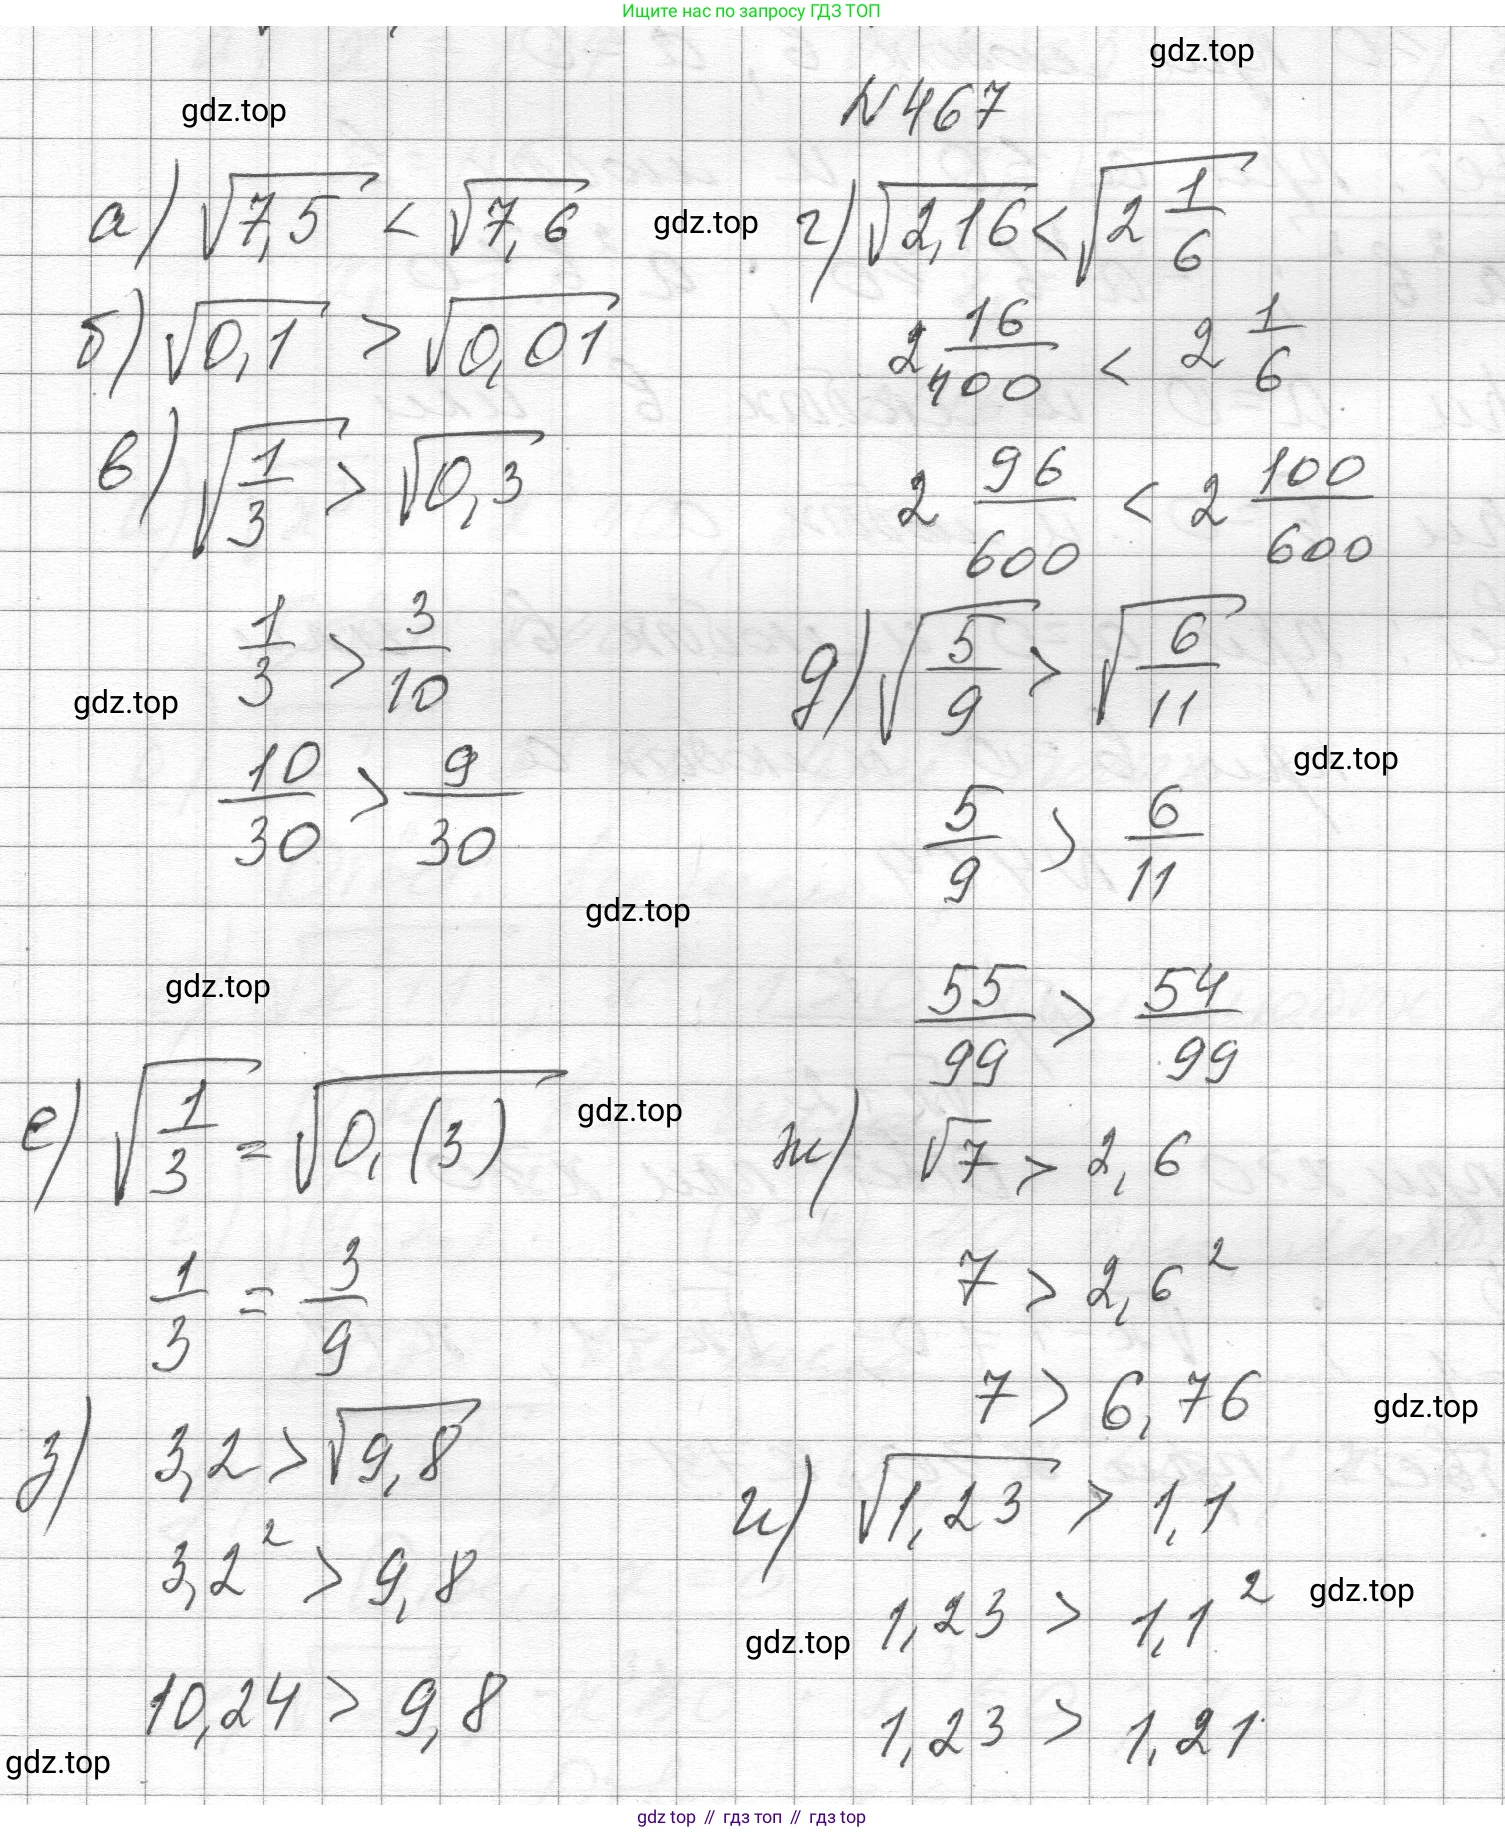 Ищите нас по запросу ГДЗ ТОП
gdz.top
gdz.top
№ 467
а) √7,5 < √7,6
gdz.top
г) √2,16 < √(2 1/6)
б) √0,1 > √0,01
2 16/100 < 2 1/6
в) √(1/3) > √0,3
2 96/600 < 2 100/600
1/3 > 3/10
gdz.top
д) √(5/9) > √(6/11)
gdz.top
10/30 > 9/30
5/9 > 6/11
gdz.top
gdz.top
55/99 > 54/99
е) √(1/3) = √0,(3)
gdz.top
ж) √7 > 2,6
1/3 = 3/9
7 > 2,6²
7 > 6,76
gdz.top
з) 3,2 > √9,8
и) √1,23 > 1,1
3,2² > 9,8
1,23 > 1,1²
gdz.top
gdz.top
10,24 > 9,8
1,23 > 1,21
gdz.top
gdz top // гдз топ // гдз top